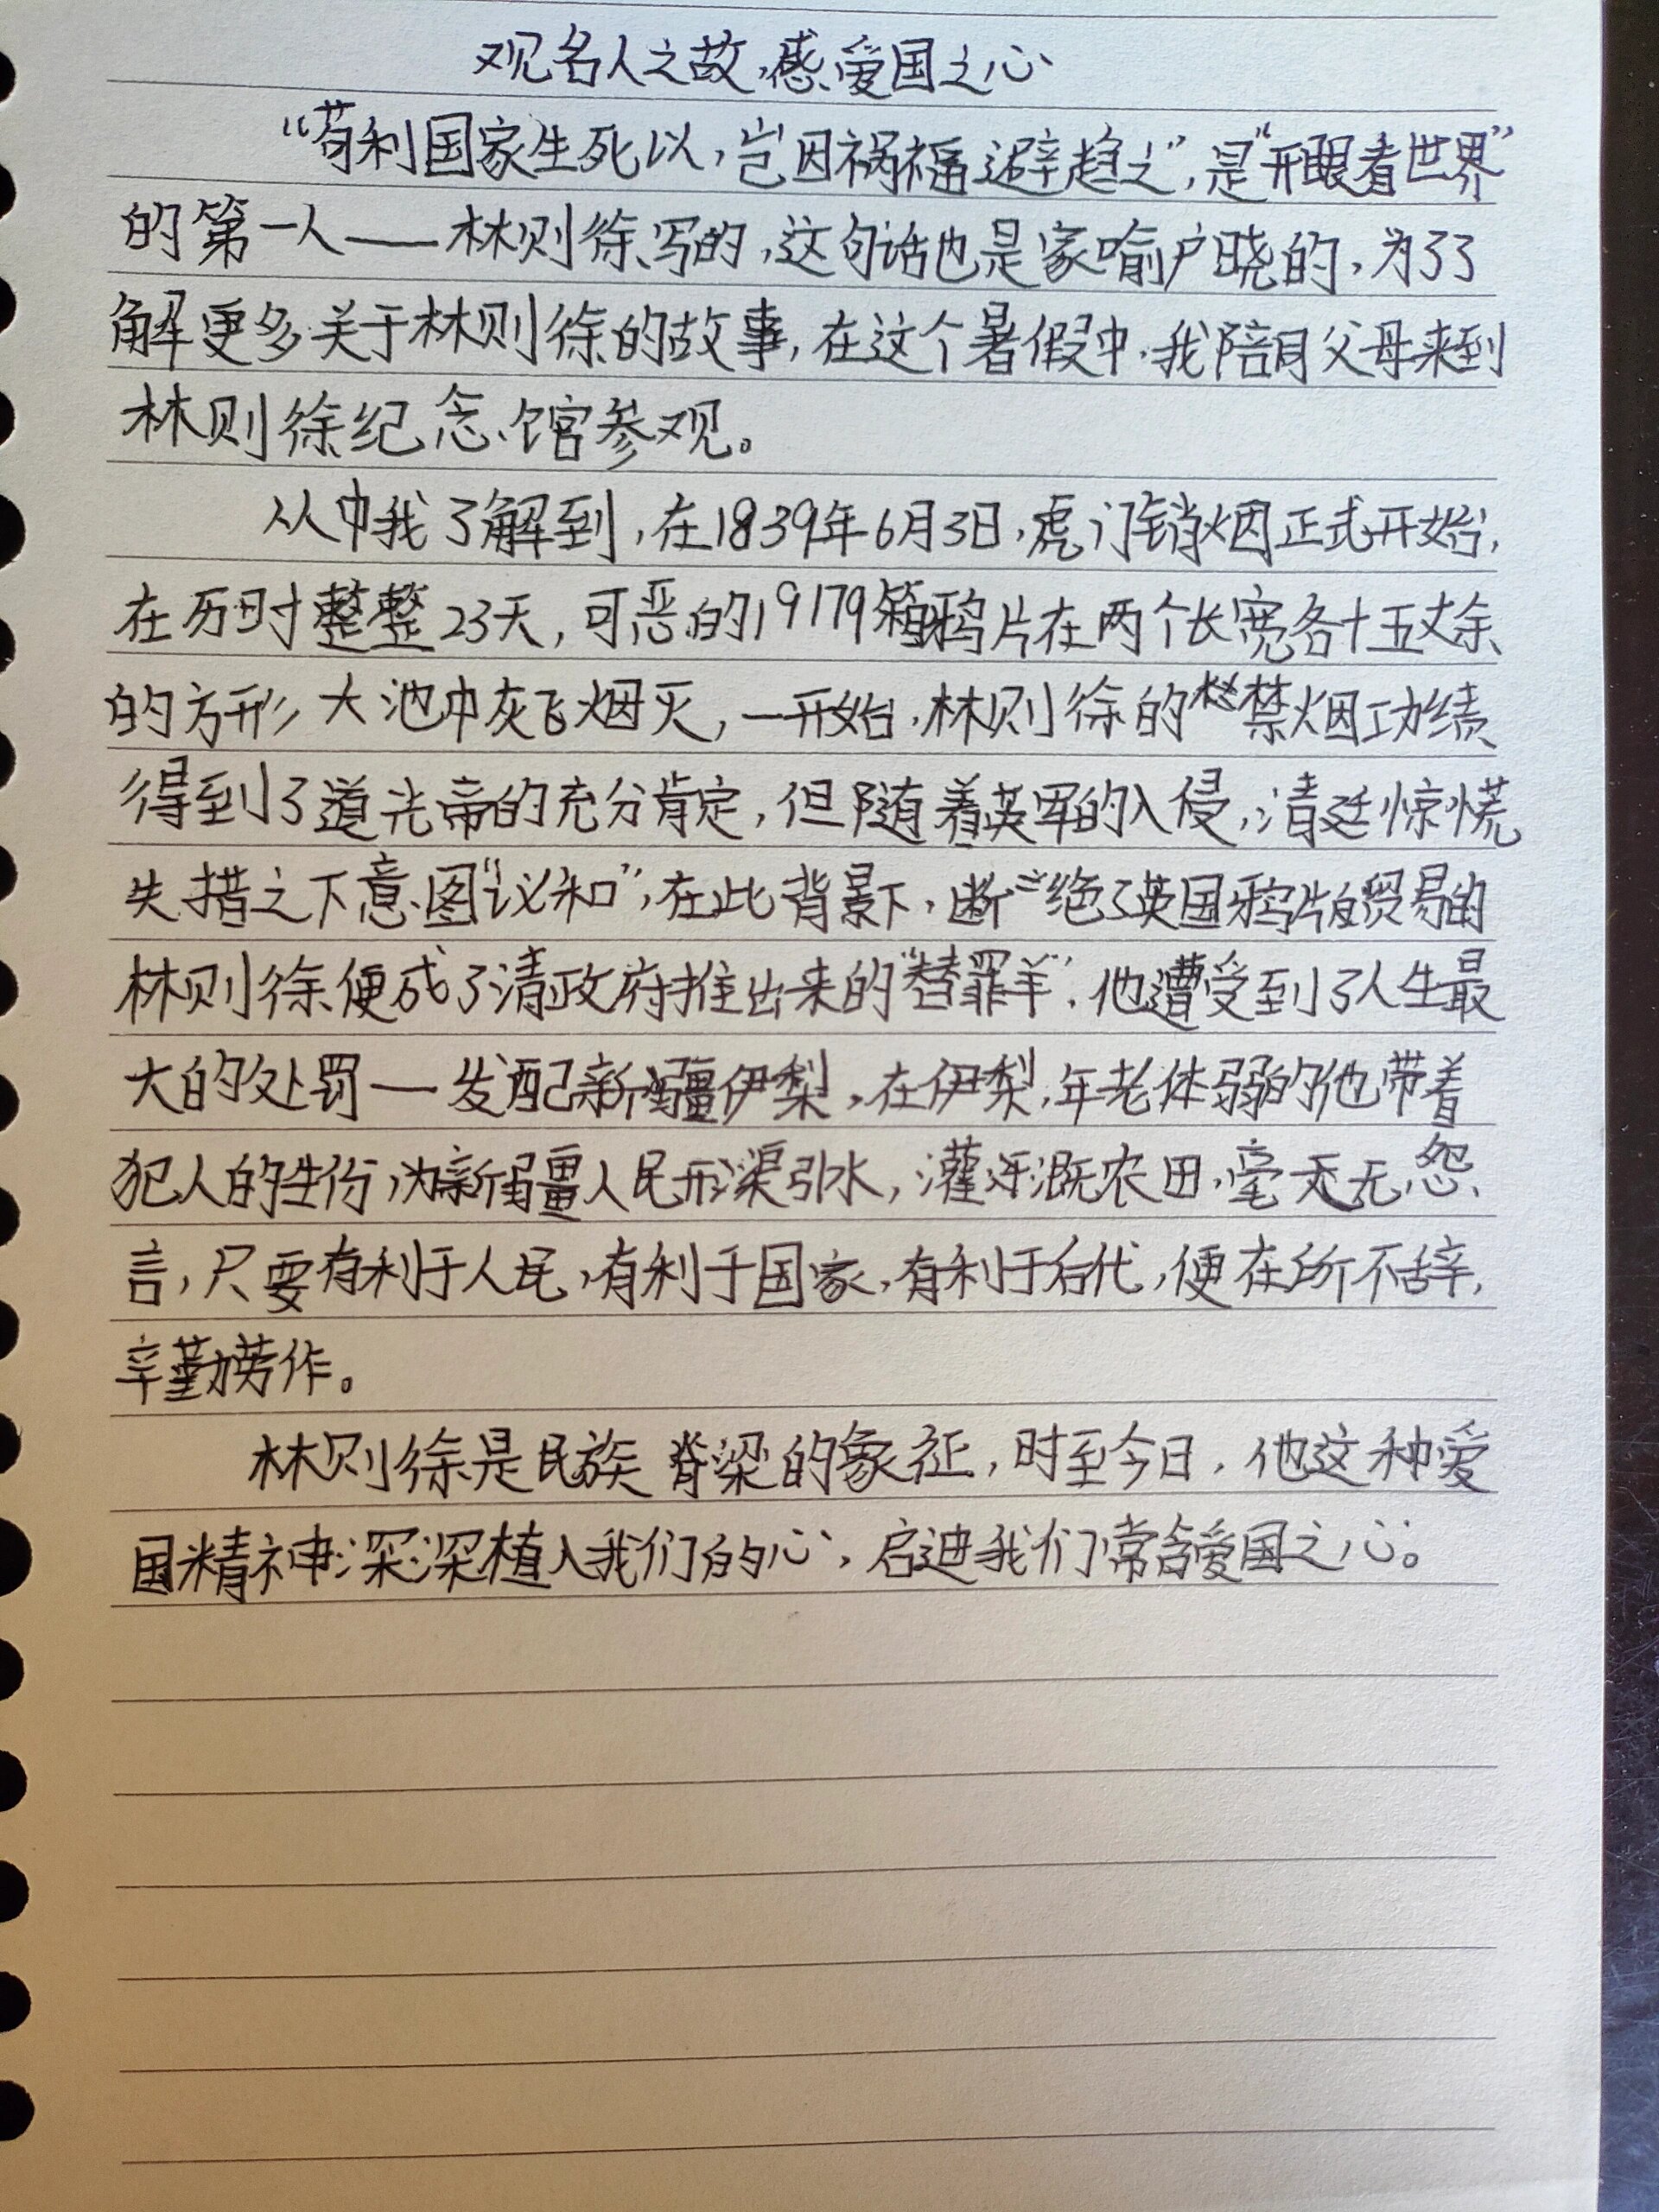 观名人之故,感爱国之心
“苟利国家生死以,岂因祸福避趋之”,是“开眼看世界”
的第一人——林则徐写的,这句话也是家喻户晓的,为了了
解更多关于林则徐的故事,在这个暑假中,我陪同父母来到
林则徐纪念馆参观。
从中我了解到,在1839年6月3日,虎门销烟正式开始,
在历时整整23天,可恶的19179箱鸦片在两个长宽各十五丈余
的方形大池中灰飞烟灭,一开始,林则徐的禁烟功绩
得到了道光帝的充分肯定,但随着英军的入侵,清廷惊慌
失措之下意图“议和”,在此背景下,断绝了英国鸦片贸易的
林则徐便成了清政府推出来的“替罪羊”,他遭受到了人生最
大的处罚—发配新疆伊犁,在伊犁,年老体弱的他带着
犯人的身份,为新疆人民形渠引水,灌溉农田,毫无怨
言,只要有利于人民,有利于国家,有利于后代,便在所不辞,
辛勤劳作。
林则徐是民族脊梁的象征,时至今日,他这种爱
国精神深深植入我们的心,启迪我们常含爱国之心。